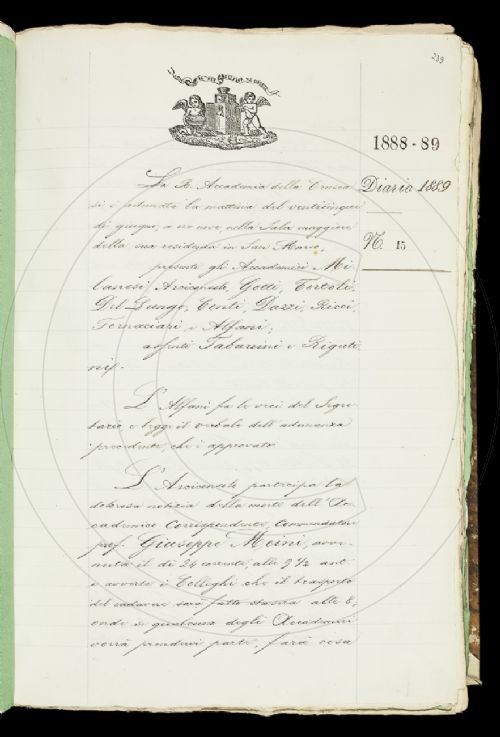 239
1888-89
Diario 1889
N. 15
La R. Accademia della Crusca
si è adunata la mattina del venticinque
di giugno, a ore nove, nella Sala maggiore
della sua residenza in San Marco;
presenti gli Accademici Mi-
lanesi Arciconsolo, Gotti, Tortoli,
Del Lungo, Conti, Dazzi, Ricci,
Fornaciari, e Alfani;
assenti Tabarrini e Riguti-
ni.
L'Alfani fa le veci del Segre-
tario, e legge il verbale dell'adunanza
precedente, che è approvato.
L'Arciconsolo partecipa la
dolorosa notizia della morte dell'Ac-
cademico Corrispondente, Commendatore
prof. Giuseppe Meini, avve-
nuta il dì 24 corrente, alle 9 1/2 ant.
e avverte i Colleghi che il trasporto
del cadavere sarà fatto stasera alle 8,
onde se qualcuno degli Accademici
vorrà prendervi parte, farà cosa